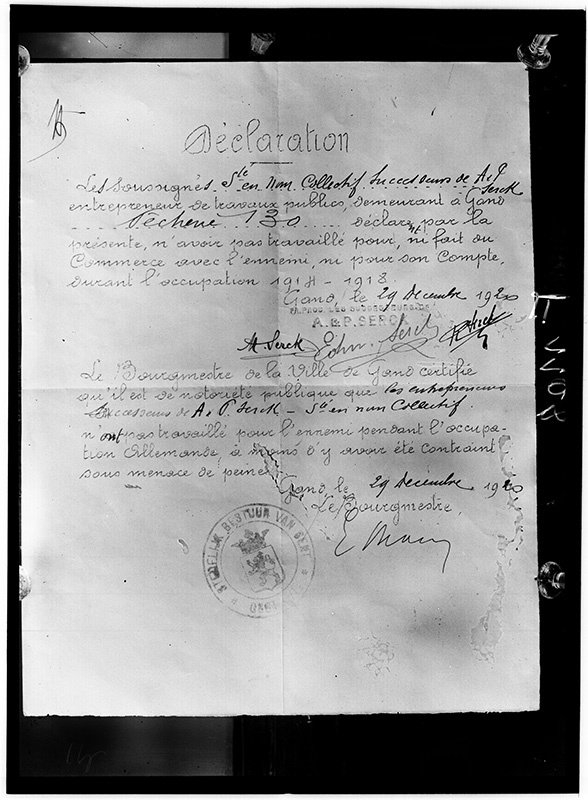 Déclaration
Les soussignés Sté en nom Collectif Successeurs de A & P Serck
entrepreneur de travaux publics, demeurant à Gand
130 déclare par la
présente, n'avoir pas travaillé pour, ni fait du
Commerce avec l'ennemi, ni pour son Compte,
durant l'occupation 1914 - 1918.
Gand, le 29 Décembre 1920
A. & P. SERCK
A Serck Edm. Serck
Le Bourgmestre de la Ville de Gand certifie
qu'il est de notoriété publique que les entrepreneurs
Successeurs de A & P. Serck - Sté en nom Collectif
n'ont pas travaillé pour l'ennemi pendant l'occupa-
tion Allemande, à moins d'y avoir été contraint
sous menace de peine.
Gand, le 29 Décembre 1920
Le Bourgmestre,
STEDELIJK BESTUUR VAN GENT